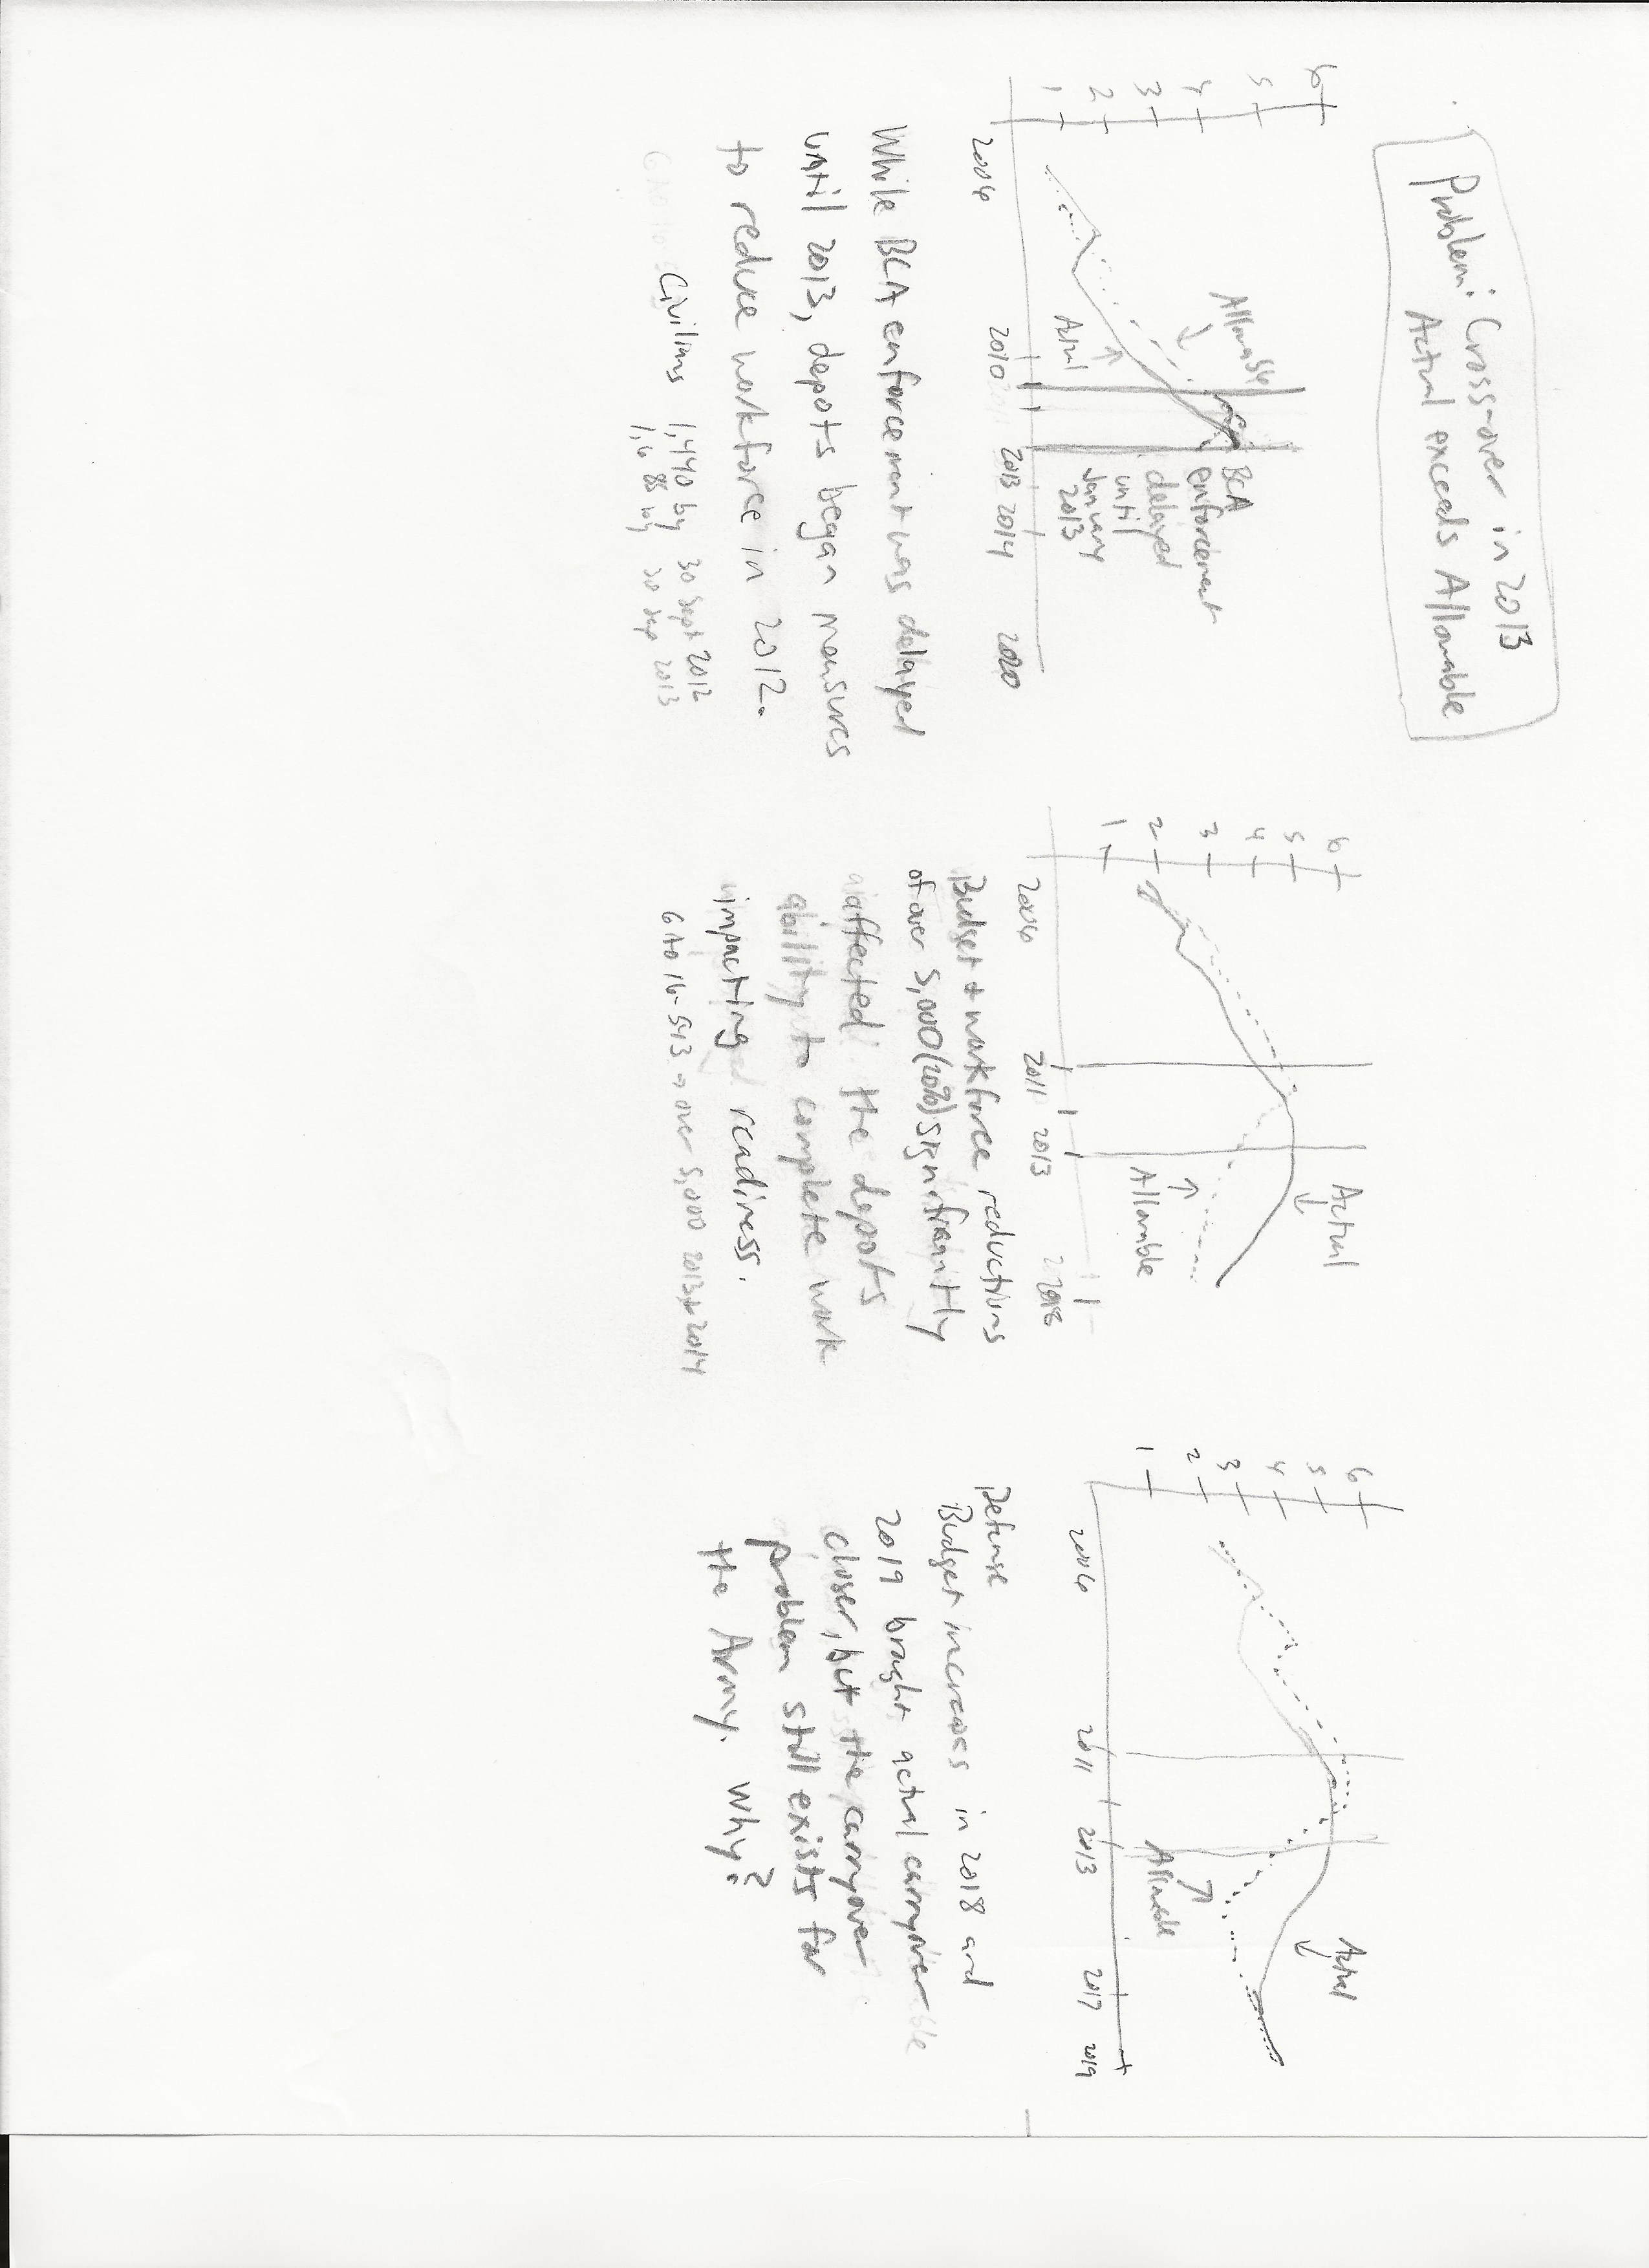 Problem: Cross-over in 2013
Actual exceeds Allowable
6
5
4
3
2
1
Allowable
Actual
BCA
enforcement
delayed
until
January
2013
2006
2010
2013
2014
2020
While BCA enforcement was delayed
until 2013, depots began measures
to reduce workforce in 2012.
Civilians 1,440 by 30 Sept 2012
1,685 by 30 Sep 2013
6
5
4
3
2
1
Actual
Allowable
2006
2011
2013
2018
Budget + workforce reductions
of over 5,000 (20%) significantly
affected the depots
ability to complete work
impacting readiness.
GAO 16-543 → over 5,000 2013 + 2014
6
5
4
3
2
1
Actual
Allowable
2006
2011
2013
2017
2019
Defense
Budget increases in 2018 and
2019 brought actual carryover
closer, but the carryover
problem still exists for
the Army. Why?